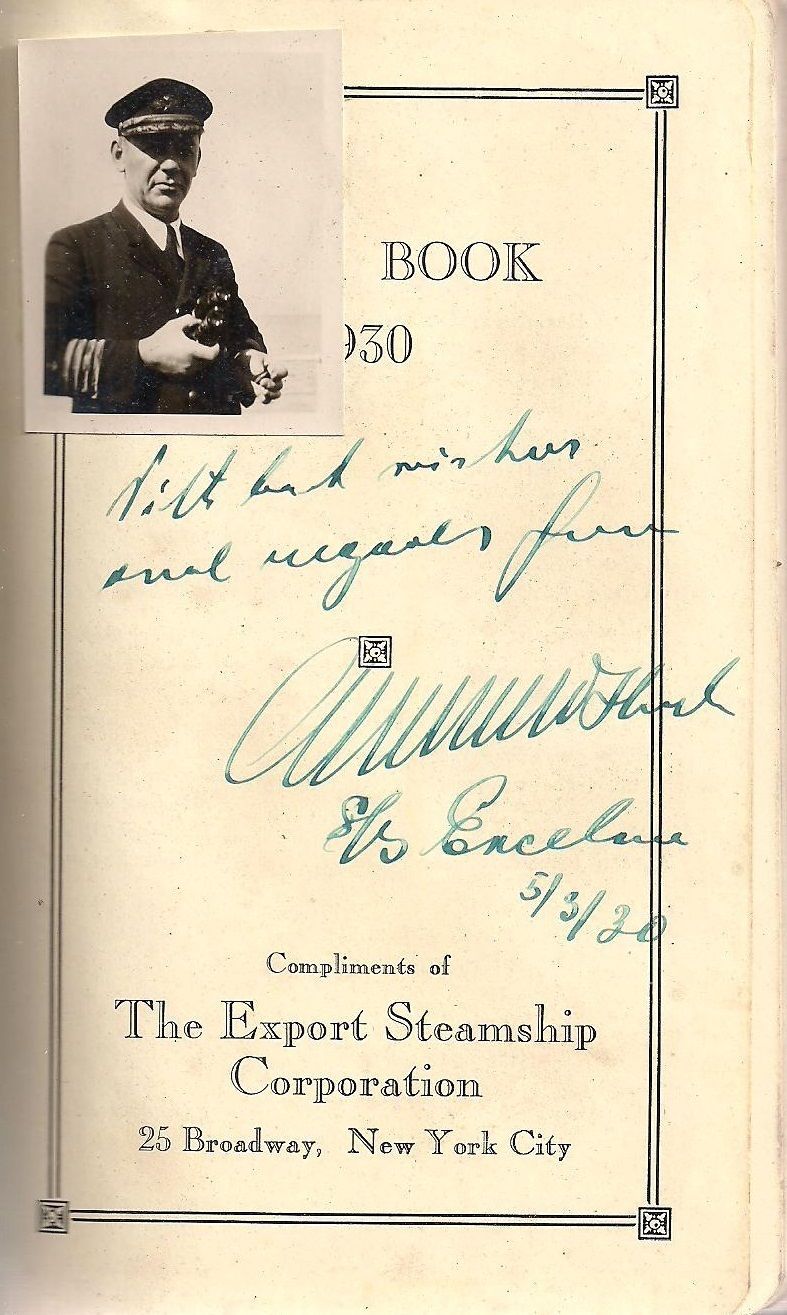 BOOK
930
With best wishes
and regards from
S/S
5/3/30
Compliments of
The Export Steamship
Corporation
25 Broadway, New York City